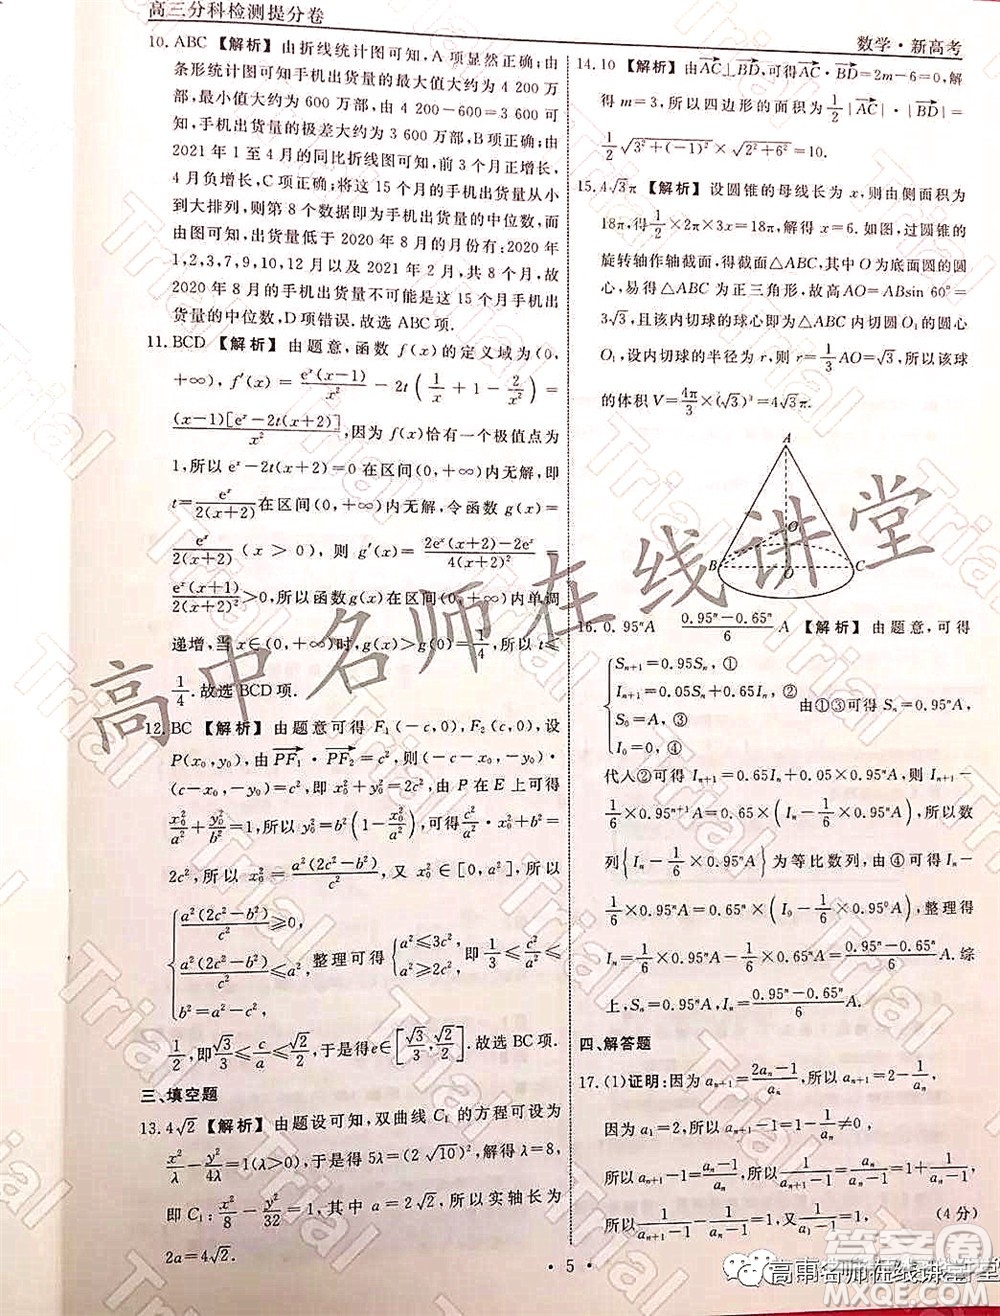 高三分科检测提分卷
数学·新高考
10. ABC 【解析】由折线统计图可知,A 项显然正确;由
条形统计图可知手机出货量的最大值大约为 4 200 万
部,最小值大约为 600 万部,由 4 200-600=3 600 可
知,手机出货量的极差大约为 3 600 万部,B项正确;由
2021 年 1 至 4 月的同比折线图可知,前 3 个月正增长,
4 月负增长,C项正确;将这 15 个月的手机出货量从小
到大排列,则第 8 个数据即为手机出货量的中位数,而
由图可知,出货量低于 2020 年 8 月的月份有:2020 年
2,7,9,10,11,12 月以及 2021 年 2 月,共 8 个月,所以
2020 年 8 月的手机出货量不可能是这 15 个月手机出
货量的中位数,D项错误.故选 ABC 项.
11. BCD 【解析】由题意,函数 f(x)的定义域为(0,
+∞),f′(x)=e^x(x-1)/x²-2t(1/x+1-2/x²)=
(x-1)[e^x-2t(x+2)]/x²,因为 f(x)恰有一个极值点为
1,所以 e^x-2t(x+2)=0 在区间(0,+∞)内无解,即
t=e^x/2(x+2)在区间(0,+∞)内无解,令函数 g(x)=
e^x/2(x+2)(x>0),则 g′(x)=2e^x(x+2)-2e^x/4(x+2)²=
e^x(x+1)/2(x+2)²>0,所以函数 g(x)在(0,+∞)内单调
递增,当 x∈(0,+∞)时,g(x)>g(0)=1/4,所以 t≤
1/4.故选 BCD 项.
12. BC 【解析】由题意可得 F₁(-c,0),F₂(c,0),设
P(x₀,y₀),由PF₁·PF₂=c²,则(-c-x₀,-y₀)·
(c-x₀,-y₀)=c²,即 x₀²+y₀²=2c²,由 P 在 E 上可得
x₀²/a²+y₀²/b²=1,所以 y₀²=b²(1-x₀²/a²),则 c²/a²·x₀²+b²=
2c²,所以 x₀²=a²(2c²-b²)/c²,又 x₀²∈[0,a²],所以
{a²(2c²-b²)/c²≥0,
a²(2c²-b²)/c²≤a²,整理得{a²≤3c²,a²≥2c²,即1/3≤c²/a²≤
b²=a²-c²,
1/2,即√3/3≤c/a≤√2/2,于是得e∈[√3/3,√2/2].故选 BC 项.
三、填空题
13. 4√2 【解析】由题设可知,双曲线 C₁ 的方程可设为
x²/λ-y²/4λ=1(λ>0),于是可得 5λ=(2√10/2)²,解得 λ=8,
即 C₁:x²/8-y²/32=1,其中 a=2√2,所以实轴长为
2a=4√2.
14. 10 【解析】由AC⊥BD,可得AC·BD=2m-6=0,解
得 m=3,所以四边形的面积为1/2|AC|·|BD|=
1/2√(3²+(-1)²)×√(2²+6²)=10.
15. 4√3π 【解析】设圆锥的母线长为 x,则由侧面积为
18π,得1/2×2π×3x=18π,解得 x=6.如图,过圆锥的
旋转轴作轴截面,得截面△ABC,其中 O 为底面圆的圆
心,且易得△ABC 为正三角形,故高AO=ABsin 60°=
3√3,且该内切球的球心即为△ABC 内切圆O₁的圆心
O₁,设内切球的半径为 r,则 r=1/3AO=√3,所以该球
的体积 V=4π/3×(√3)³=4√3π.
A
O
B
O
C
16. 0.95ⁿA (0.95ⁿ-0.65ⁿ)/6 A 【解析】由题意,可得
{Sₙ₊₁=0.95Sₙ,①
Iₙ₊₁=0.05Sₙ+0.65Iₙ,②
S₀=A,③
I₀=0,④
由①③可得 Sₙ=0.95ⁿA,
代人②可得 Iₙ₊₁=0.05×0.95ⁿA+0.65Iₙ,即 Iₙ₊₁-
1/6×0.95ⁿ⁺¹A=0.65×(Iₙ-1/6×0.95ⁿA),所以数
列{Iₙ-1/6×0.95ⁿA}为等比数列,由④可得 Iₙ-
1/6×0.95ⁿA=0.65ⁿ×(I₀-1/6×0.95⁰A),整理得
Iₙ=1/6×0.95ⁿA-1/6×0.65ⁿA=(0.95ⁿ-0.65ⁿ)/6 A.综
上,Sₙ=0.95ⁿA,Iₙ=(0.95ⁿ-0.65ⁿ)/6 A.
四、解答题
17. (1)证明:因为 aₙ₊₁=(2aₙ-1)/aₙ,所以 aₙ₊₁-1=(aₙ-1)/aₙ,
因为 a₁=2,所以 aₙ-1≠0,
所以1/(aₙ₊₁-1)=aₙ/(aₙ-1),所以1/(aₙ₊₁-1)=aₙ/(aₙ-1)=1+1/(aₙ-1),
所以1/(aₙ₊₁-1)-1/(aₙ-1)=1,又1/(a₁-1)=1, (4 分)
• 5 •
高中名师在线讲堂
Trial
高中名师在线讲堂
答案圈